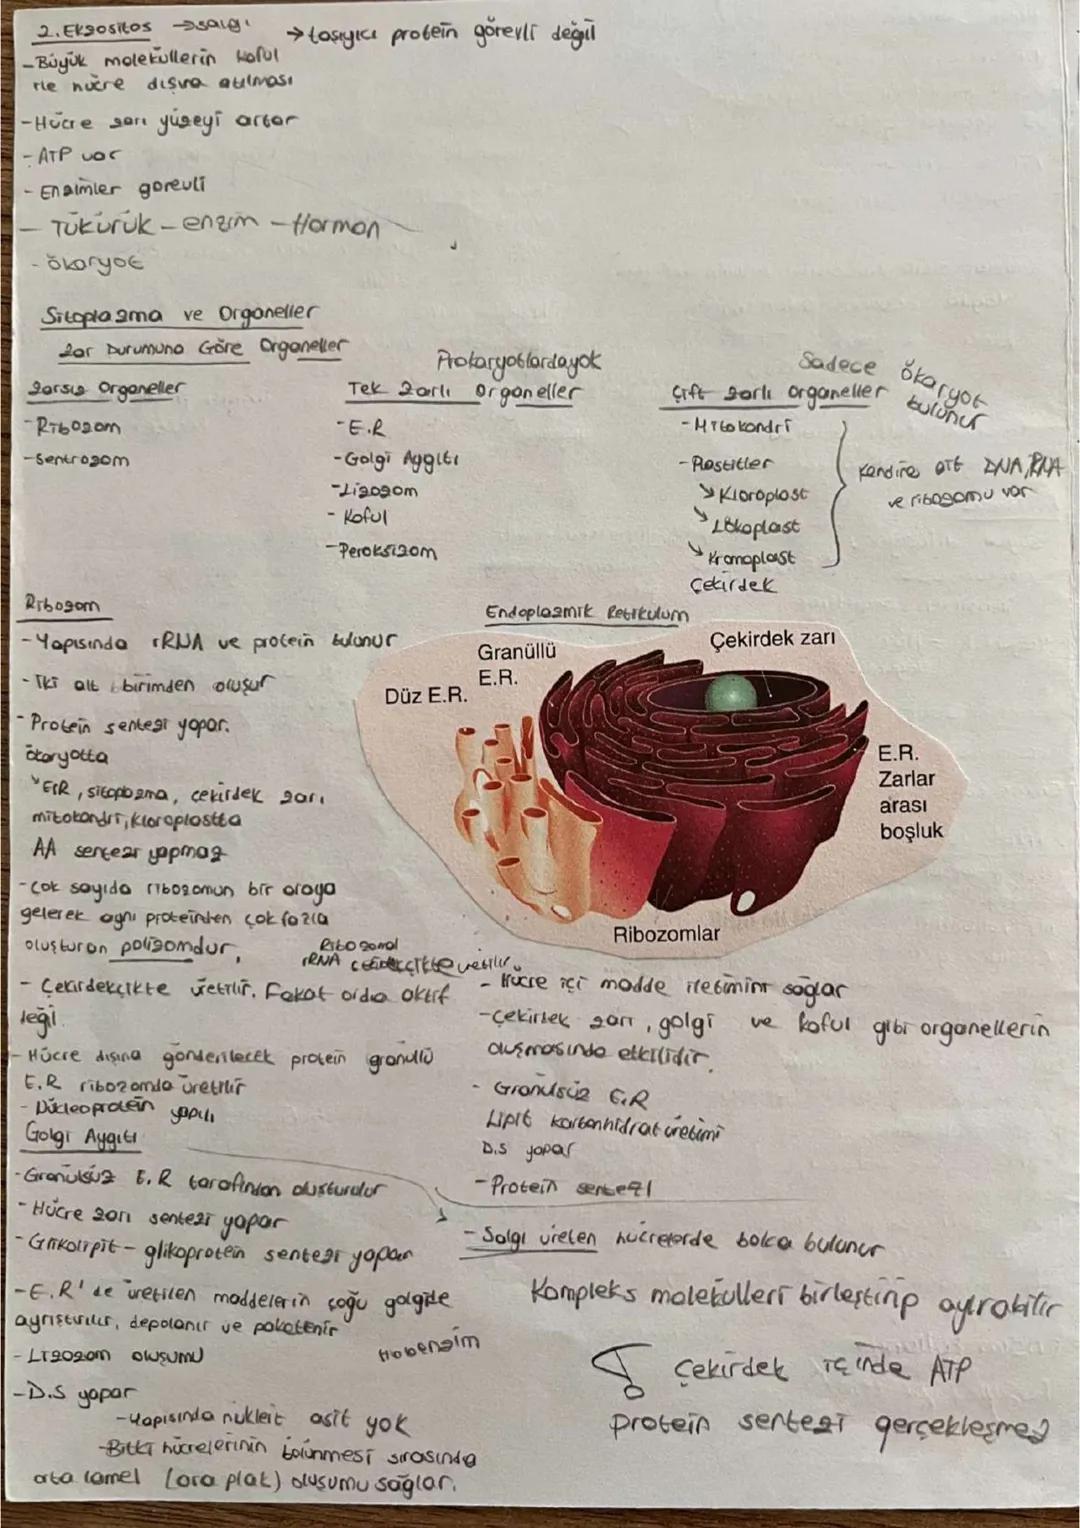 2. Ekzositos → salgı → taşıyıcı protein görevli değil
- Büyük moleküllerin koful
ile hücre dışına atılması
- Hücre zarı yüzeyi artar
- ATP var
- Enzimler görevli
- Tükürük - enzim - Hormon
- ökaryot
Sitoplazma ve Organeller
Zar Durumuna Göre Organeller
Zarsız Organeller
- Ribozom
- Sentrozom
Prokaryotlarda yok
Tek Zarlı Organeller
- E.R
- Golgi Aygıtı
- Lizozom
- Koful
- Peroksizom
Sadece ökaryot bulunur
Çift zarlı organeller
- Mitokondri
- Plastitler
↘ Kloroplast
↘ Lökoplast
↘ Kromoplast
Çekirdek
Kendine ait DNA, RNA
ve ribozomu var
Ribozom
- Yapısında rRNA ve protein bulunur
- İki alt birimden oluşur
- Protein sentezi yapar.
ökaryotta
↘ E.R, sitoplazma, çekirdek zarı,
mitokondri, kloroplastta
AA sentezi yapmaz
- Çok sayıda ribozomun bir araya
gelerek aynı proteinden çok fazla
oluşturan polizomdur.
Ribozomal
rRNA çekirdekçikte üretilir.
- Çekirdekçikte üretilir. Fakat orda aktif
değil
- Hücre dışına gönderilecek protein granüllü
E.R ribozomda üretilir
- Nükleoprotein yapılı
Endoplazmik Retikulum
Granüllü
E.R.
Çekirdek zarı
Düz E.R.
E.R.
Zarlar
arası
boşluk
Ribozomlar
- Hücre içi madde iletimini sağlar
- Çekirdek zarı, golgi ve koful gibi organellerin
oluşmasında etkilidir.
- Granülsüz E.R
Lipit karbonhidrat üretimi
D.S yapar
- Protein sentezi
Golgi Aygıtı
- Granülsüz E.R tarafından oluşturulur
- Hücre zarı sentezi yapar
- Glikolipit - glikoprotein sentezi yapar
- E.R' de üretilen maddelerin çoğu golgide
ayrıştırılır, depolanır ve paketlenir
- Lizozom oluşumu
- D.S yapar
Holoenzim
- Yapısında nükleit asit yok
- Bitki hücrelerinin bölünmesi sırasında
orta lamel (ara plak) oluşumu sağlar.
- Salgı üreten hücrelerde bolca bulunur
Kompleks molekülleri birleştirip ayırabilir
Çekirdek içinde ATP
protein sentezi gerçekleşmez